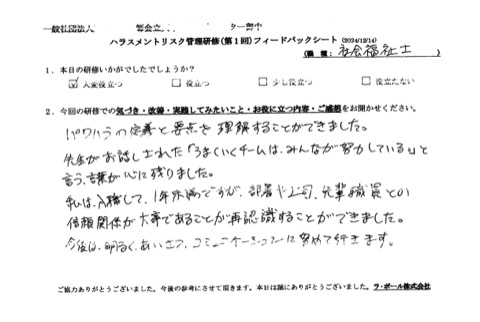 一般社団法人
ハラスメントリスク管理研修(第1回)フィードバックシート (2024/12/14)
(職種: 社会福祉士
1.本日の研修いかがでしたでしょうか?
☑ 大変役立つ □ 役立つ □ 少し役立つ □ 役立たない
2.今回の研修での気づき・改善・実践してみたいこと・お役に立つ内容・ご感想をお聞かせください。
パワハラの定義と要点を理解することができました。
先生がお話しされた「うまくいくチームは、みんなが努力している」と
言う言葉が心に残りました。
私は、入職して、1年未満ですが、部署や上司、先輩職員との
信頼関係が大事であることが再認識することができました。
今後は、明るく、あいさつ、コミュニケーションに努めて行きます。
ご協力ありがとうございました。今後の参考にさせて頂きます。本日は誠にありがとうございました。ラ・ポール株式会社